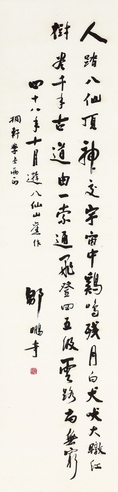 人踏八仙頂神交宇宙中鷄鳴殘月白犬吠大暾紅
樹老千年古道由一索通飛登四五級雲路尚無窮
四十八年十月遊八仙山崖作
桐軒學長兩正
鄒鵬奇